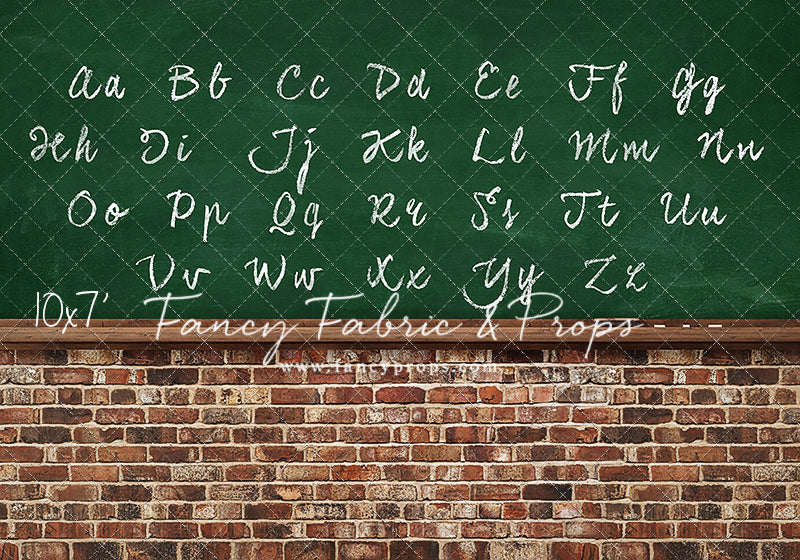 Aa Bb Cc Dd Ee Ff Gg
Hh Ii Jj Kk Ll Mm Nn
Oo Pp Qq Rr Ss Tt Uu
Vv Ww Xx Yy Zz
10x7' Fancy Fabric & Props
www.fancyprops.com